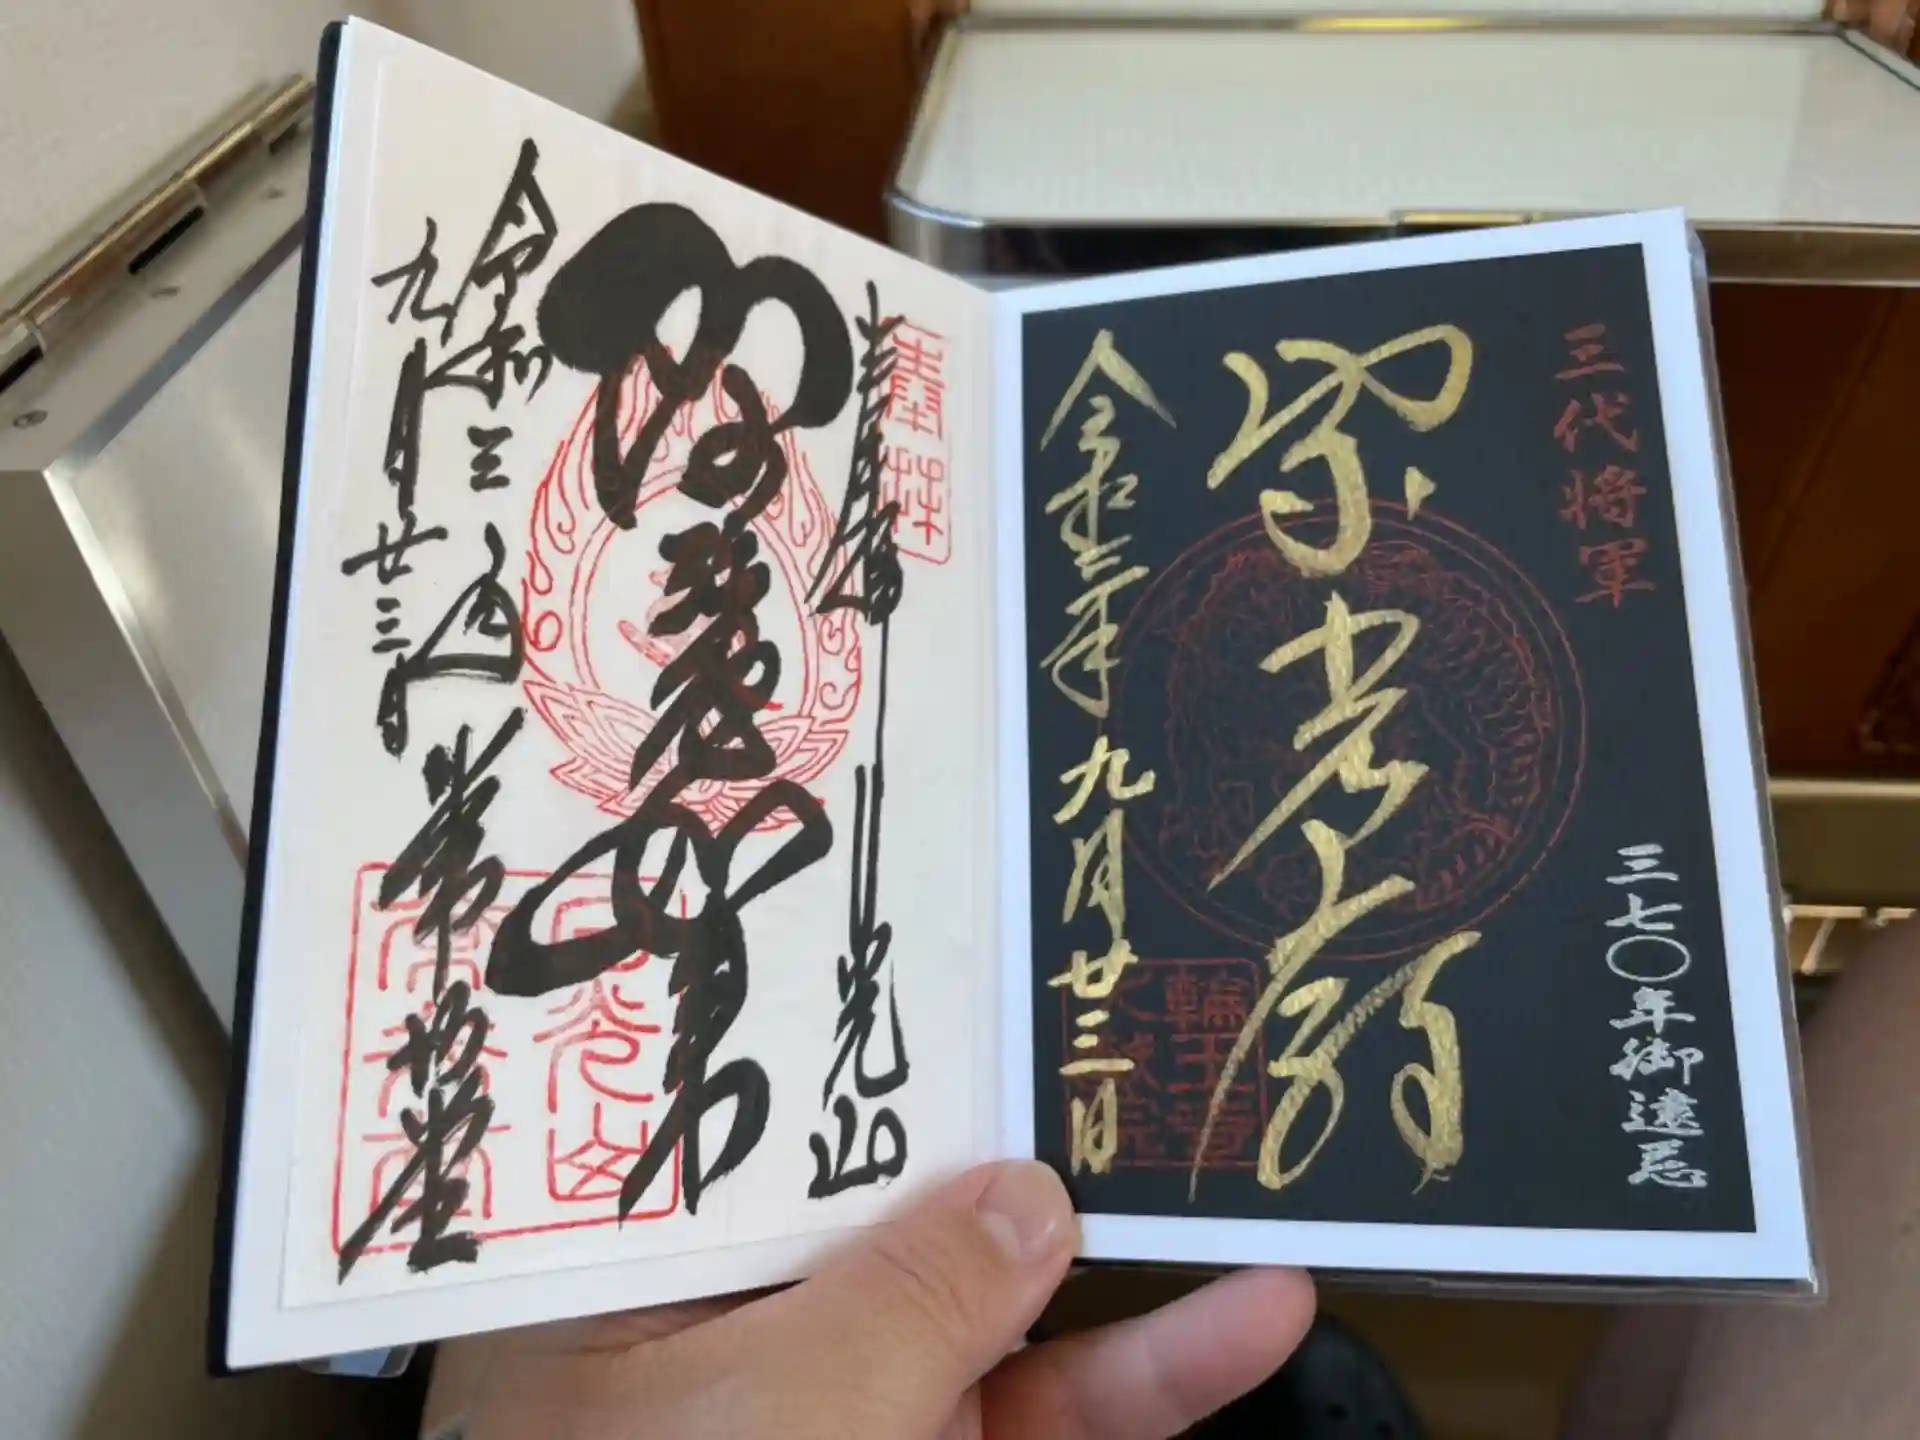 三代将軍
三七〇年御遠忌
家光廟
令和三年九月廿三日
輪王寺
大猷院
奉拝
日光山
阿弥陀如来
令和三年
九月廿三日
常行堂
日光山
常行堂